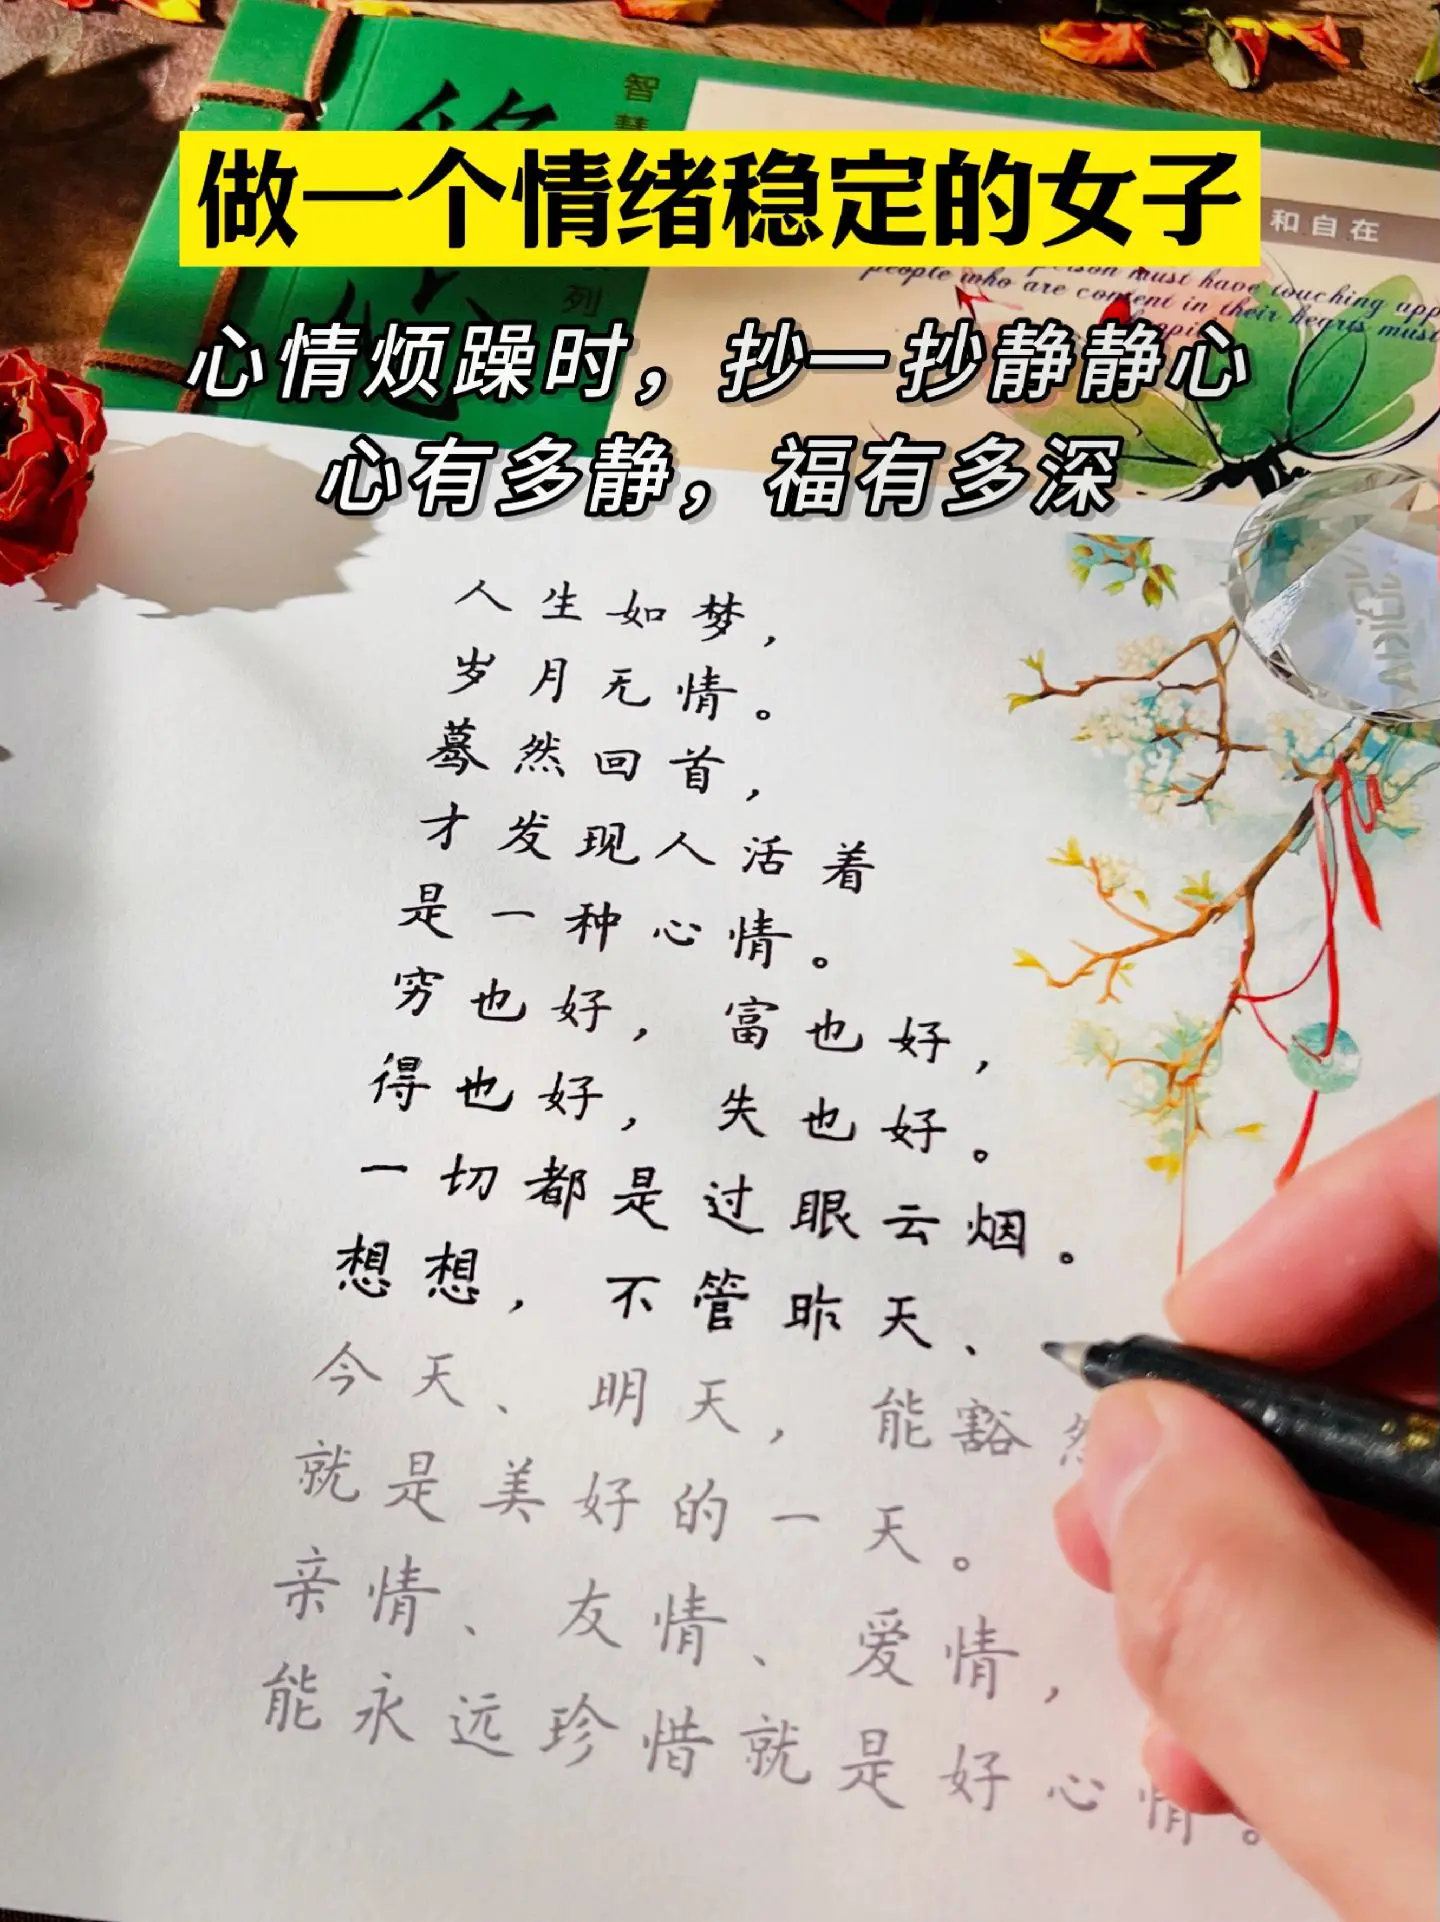 智慧
列
做一个情绪稳定的女子
和自在
person must have touching app
people who are content in their hearts must
心情烦躁时，抄一抄静静心
心有多静，福有多深
人生如梦，
岁月无情。
蓦然回首，
才发现人活着
是一种心情。
穷也好，富也好，
得也好，失也好。
一切都是过眼云烟。
想想，不管昨天、
今天、明天，能豁然
就是美好的一天。
亲情、友情、爱情，
能永远珍惜就是好心情。